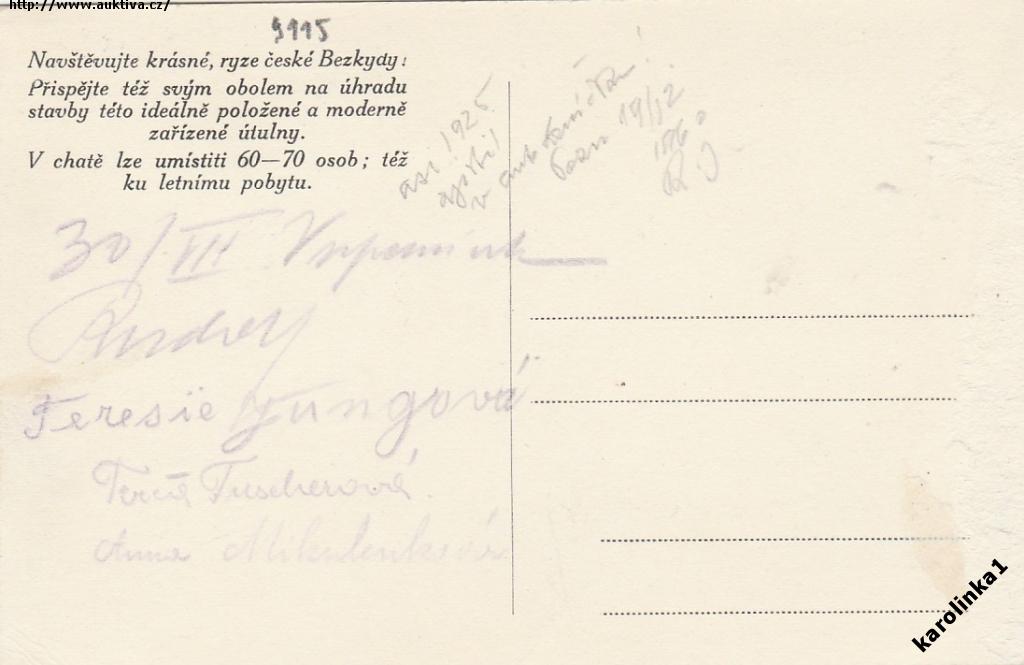 http://www.auktiva.cz/
9115
Navštěvujte krásné, ryze české Bezkydy!
Přispějte též svým obolem na úhradu
stavby této ideálně položené a moderně
zařízené útulny.
V chatě lze umístiti 60—70 osob; též
ku letnímu pobytu.
asi 1925
v
19/12
R J
30/VII
Teresie Jungová
Tuscherová
Anna Mikulenková
karolinka1